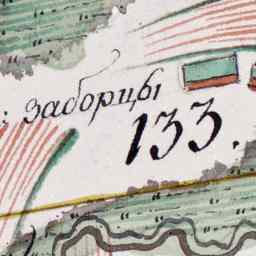 заборцы
133.